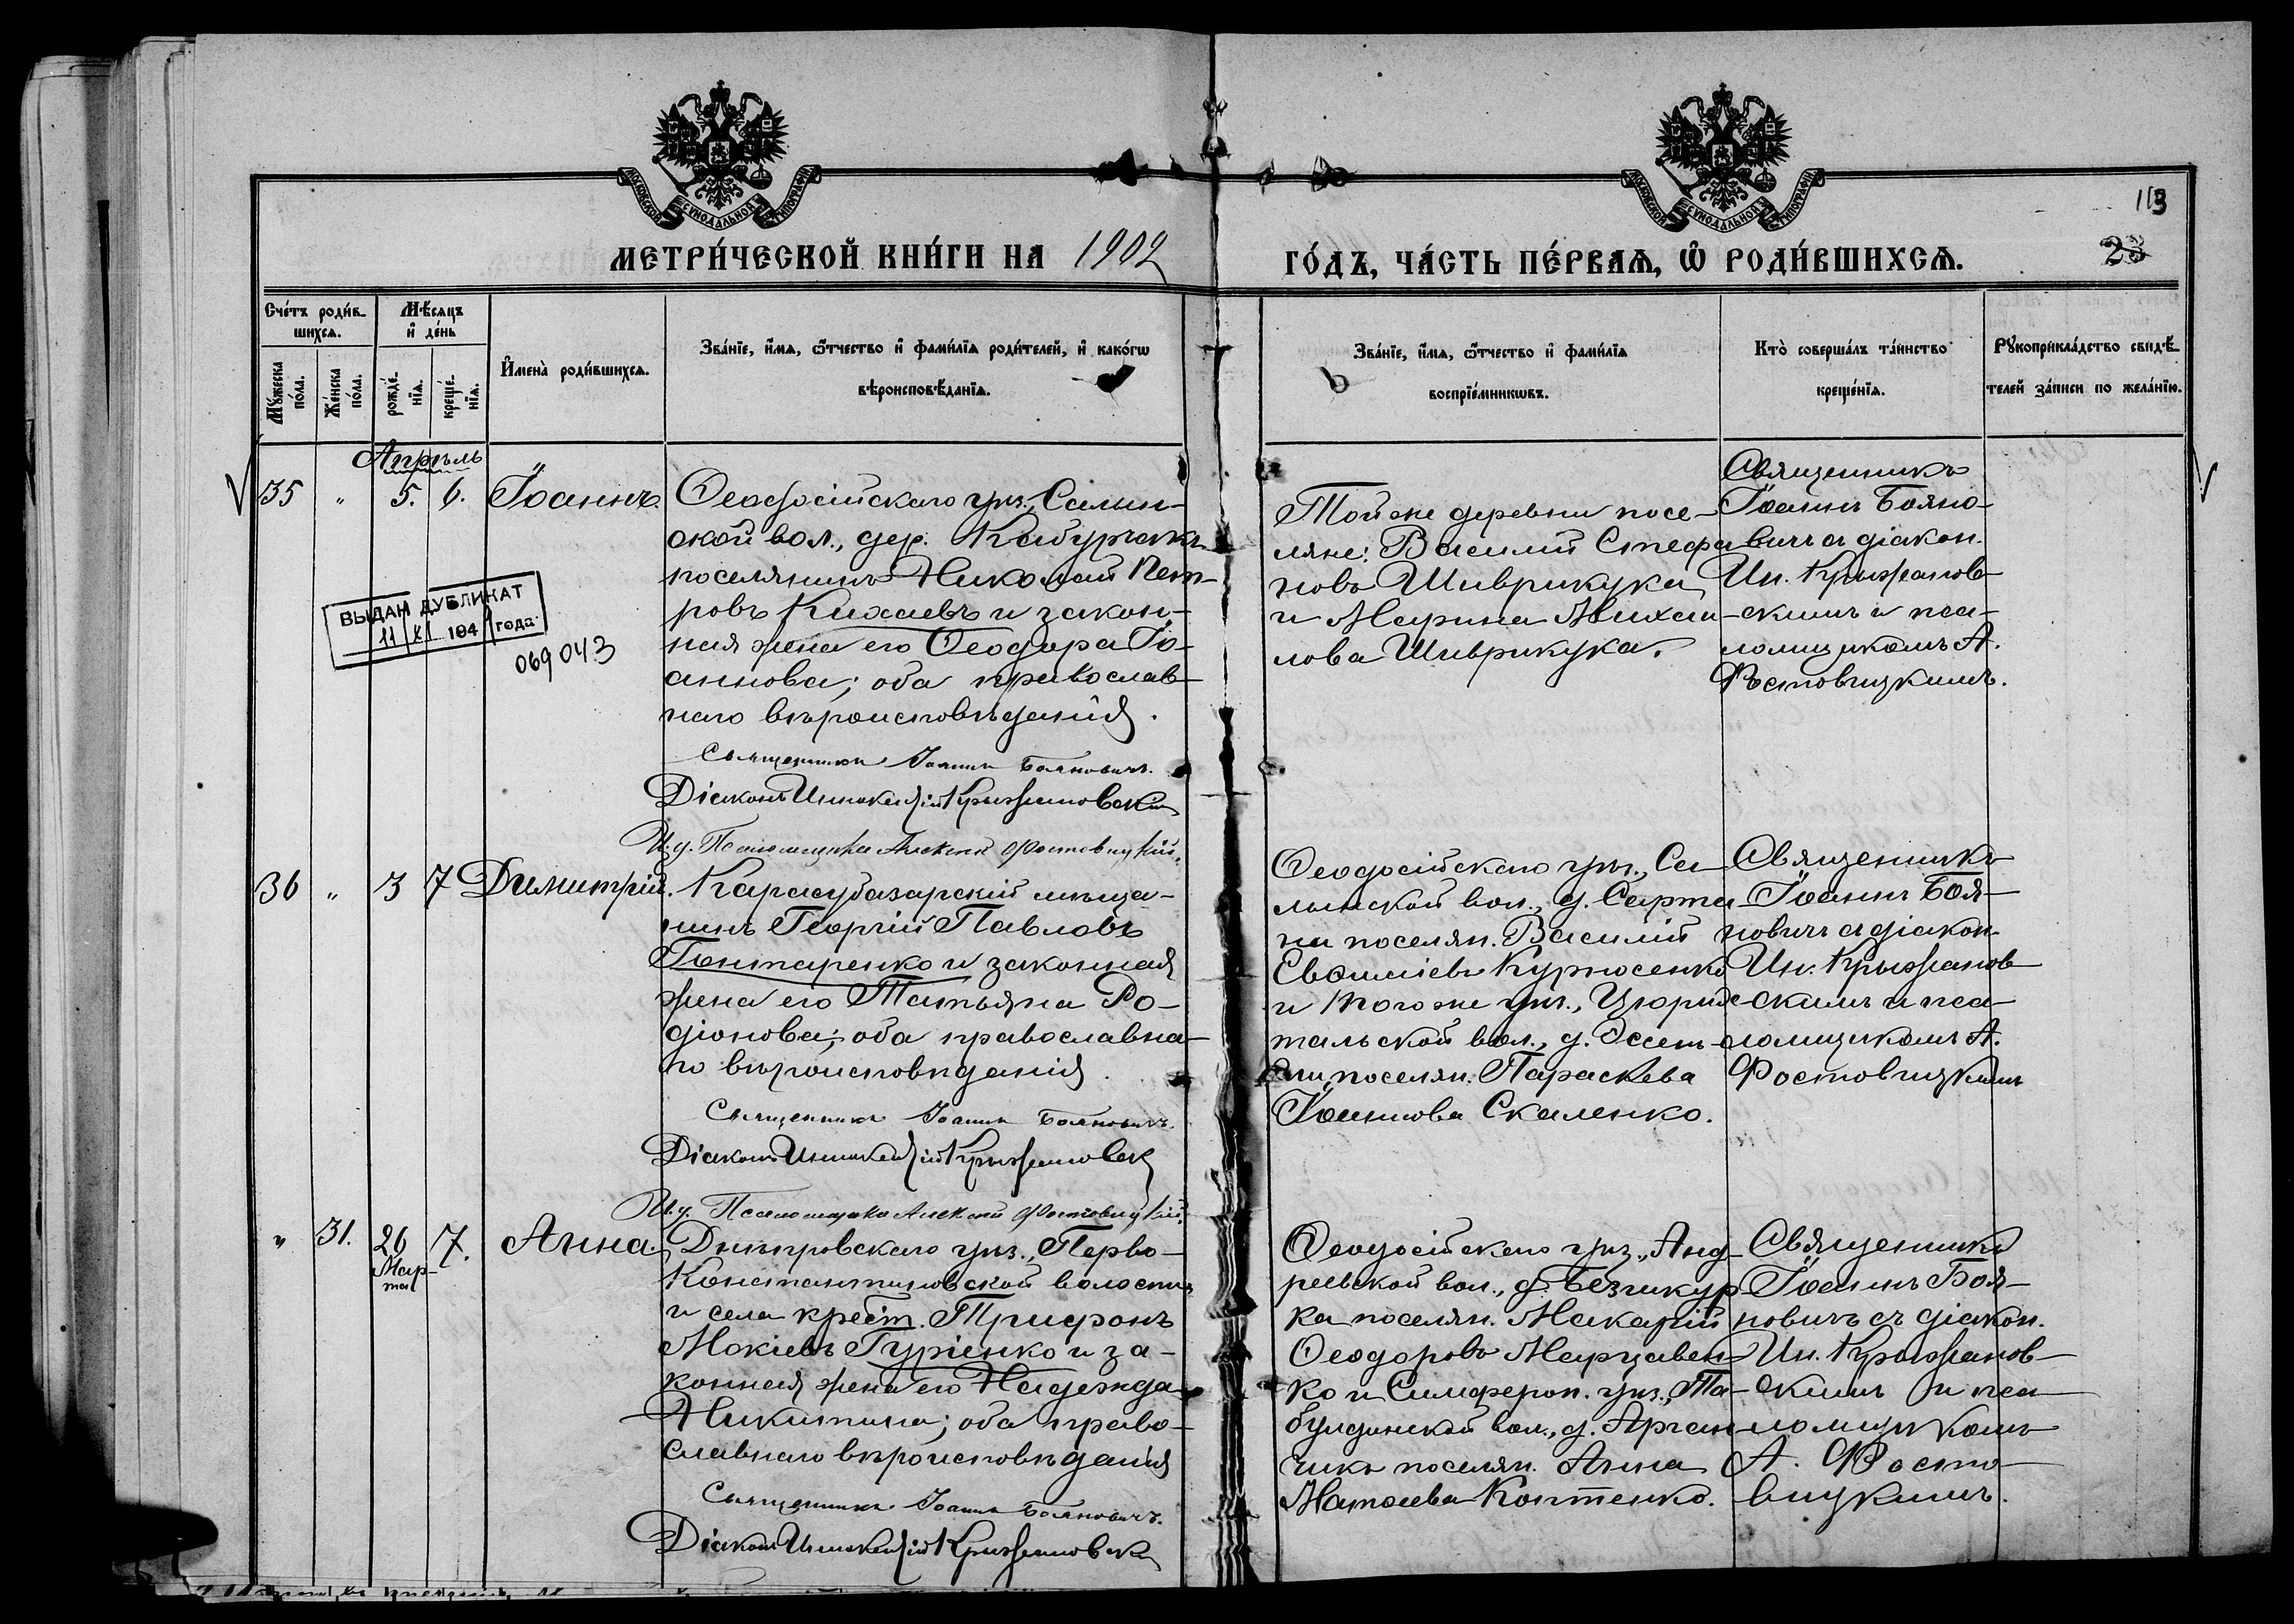 МОСКОВСКОЙ СѴНОДАЛЬНОЙ ТИПОГРАФІИ
МОСКОВСКОЙ СѴНОДАЛЬНОЙ ТИПОГРАФІИ
113
МЕТРИ́ЧЕСКОЙ КНИ́ГИ НА 1902
ГО́ДЪ, ЧА́СТЬ ПЕ́РВАѦ, Ѡ҆ РОДИ́ВШИХСѦ.
23
Сче́тъ роди́в-
шихсѧ.
Мꙋ́жеска по́ла.
Же́нска по́ла.
Мѣ́сѧцъ
и҆ де́нь
рожде́-нїѧ.
креще́-нїѧ.
И҆мена̀ роди́вшихсѧ.
Зва́нїе, и҆́мѧ, ѻ҆́тчество и҆ фами́лїѧ роди́телей, и҆ како́гѡ
вѣроисповѣ́данїѧ.
Зва́нїе, и҆́мѧ, ѻ҆́тчество и҆ фами́лїѧ
воспрїе́мникѡвъ.
Кто̀ соверша́лъ та́инство
креще́нїѧ.
Рꙋкоприкла́дство свидѣ́-
телей за́писи по жела́нїю.
Апрѣль
35 " 5. 6. Іоаннъ.
Ѳеодосійскаго уѣз., Салын-
ской вол., дер.
поселянинъ Николай Пет-
ровъ Кихаевъ и закон-
ная жена его Ѳеодора Іо-
аннова; оба православ-
наго вѣроисповѣданія.
Священникъ Іоаннъ Бояновичъ.
Діаконъ Иннокентій Крыжановскій
И.д. Псаломщика Алексѣй Фостовицкій.
Той же деревни посе-
ляне: Василій Стефа-
новъ Шиврикука
и Марина Михаи-
лова Шиврикука.
Священникъ
Іоаннъ Бояно-
вичъ съ діакон.
Ин. Крыжанов-
скимъ и пса-
ломщикомъ А.
Фостовицкимъ.
ВЫДАН ДУБЛИКАТ
11 XI 194 года
069043
36 " 3 7 Димитрій.
Карасубазарскій мѣща-
нинъ Георгій Павловъ
Бонтаренко и законная
жена его Татьяна Ро-
діонова; оба православна-
го вѣроисповѣданія.
Священникъ Іоаннъ Бояновичъ.
Діаконъ Иннокентій Крыжановск
И.д. Псаломщика Алексѣй Фостовицкій.
Ѳеодосійскаго уѣз., Са-
лынской вол., д. Сарта-
на поселян. Василій
Евѳиміевъ Курносенко
и того же уѣз., Цюрих-
тальской вол., д. Эссен-
эли поселян. Параскева
Іоаннова Скаленко.
Священникъ
Іоаннъ Боя-
новичъ съ діакон.
Ин. Крыжанов-
скимъ и пса-
ломщикомъ А.
Фостовицкимъ
" 31. 26 Мар-та 7. Анна.
Днѣпровскаго уѣз., Перво-
Константиновской волости
и села крест. Трифонъ
Мокіевъ Гуріенко и за-
конная жена его Надежда
Никитина; оба право-
славнаго вѣроисповѣданія
Священникъ Іоаннъ Бояновичъ.
Діаконъ Иннокентій Крыжановскі
Ѳеодосійскаго уѣз., Анд-
реевской вол., д. Безчикур-
ка поселян. Макарій
Ѳеодоровъ Марцавен-
ко и Симфероп. уѣз., Та-
булдинской вол., д. Арган-
чикъ поселян. Анна
Матѳеева Коптенко.
Священникъ
Іоаннъ Боя-
новичъ съ діакон.
Ин. Крыжанов-
скимъ и пса-
ломщикомъ
А. Фосто-
вицкимъ.